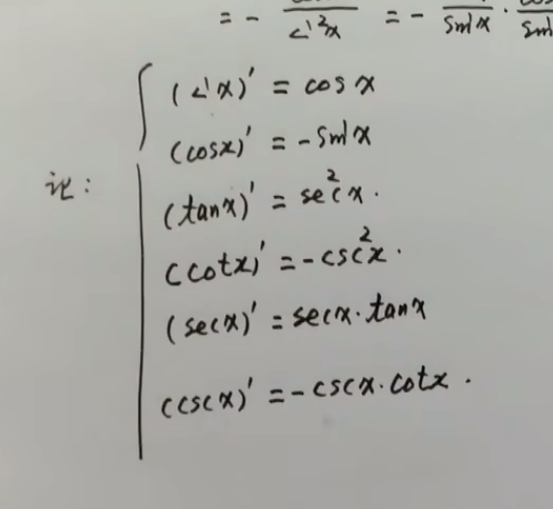 = - ─── = - 1/sin x · cos
(sin x)' = cos x
(cos x)' = - sin x
记: (tan x)' = sec²x.
(cot x)' = - csc²x.
(sec x)' = sec x · tan x
(csc x)' = - csc x · cot x.